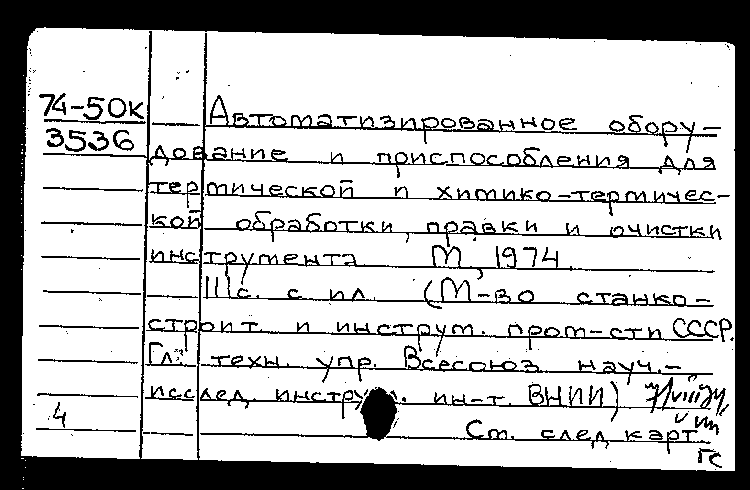 74-50к
3536
Автоматизированное обору-
дование и приспособления для
термической и химико-термичес-
кой обработки, правки и очистки
инструмента М, 1974.
111с. с ил. (М-во станко-
строит. и инструм. пром-сти СССР.
Гл. техн. упр. Всесоюз. науч.-
исслед. инструм. ин-т. ВНИИ)
4
См. след. карт.